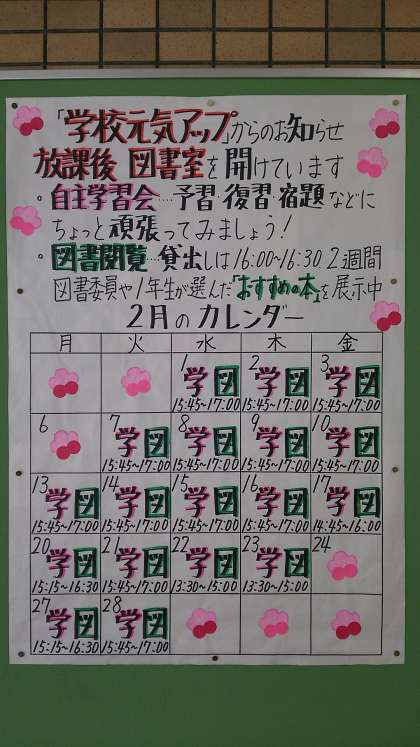 「学校元気アップ」からのお知らせ
放課後 図書室を開けています
・自主学習会…予習・復習・宿題などに
ちょっと頑張ってみましょう!
・図書閲覧…貸出しは16:00~16:30 2週間
図書委員や1年生が選んだ「おすすめの本」を展示中
2月のカレンダー
月 火 水 木 金
1 2 3
学図 学図 学図
15:45~17:00 15:45~17:00 15:45~17:00
6 7 8 9 10
学図 学図 学図 学図
15:45~17:00 15:45~17:00 15:45~17:00 15:45~17:00
13 14 15 16 17
学図 学図 学図 学図 学図
15:45~17:00 15:45~17:00 15:45~17:00 15:45~17:00 14:45~16:00
20 21 22 23 24
学図 学図 学図 学図
15:15~16:30 15:45~17:00 13:30~15:00 13:30~15:00
27 28
学図 学図
15:15~16:30 15:45~17:00